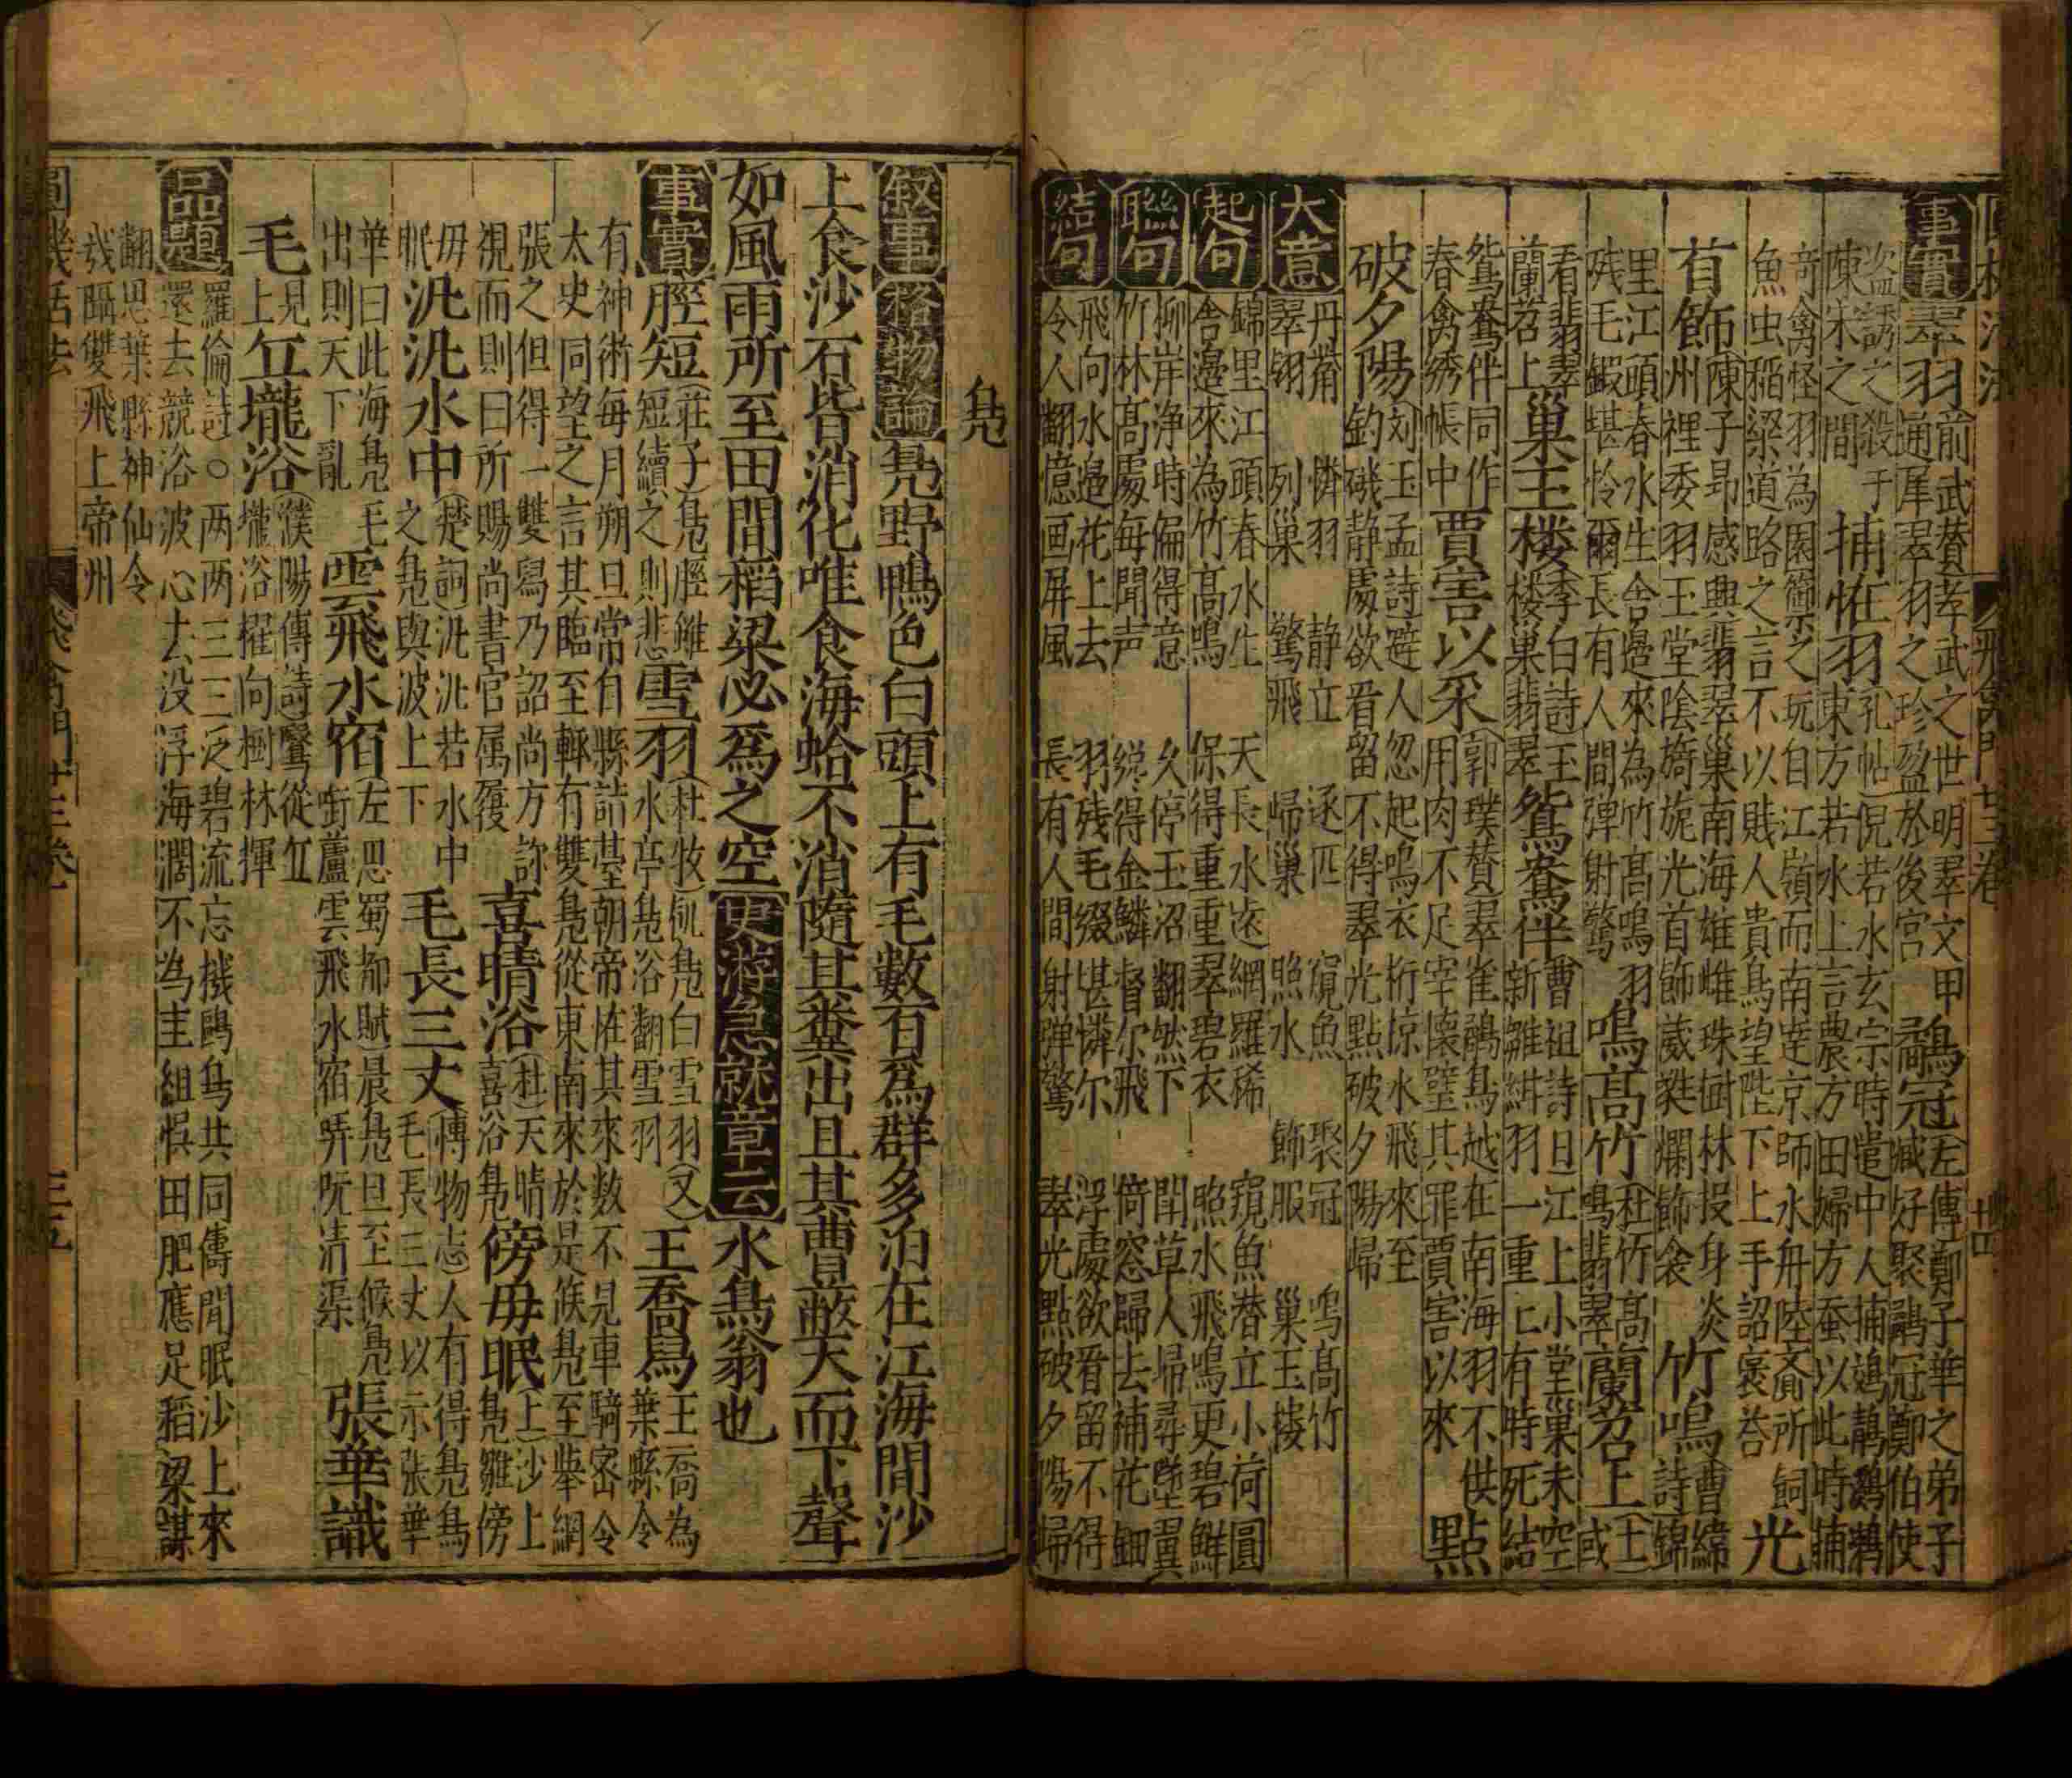 事實 翠羽 前武賛孝武之世明翠文甲 通犀翠羽之珍盈於後宮 鷸冠 左傳鄭子華之弟子 臧好聚鷸冠鄭伯使
盗誘之殺于 陳宋之間 捕怪羽 孔帖倪若水玄宗時遣中人捕鵁鶄鸂鶒 東方若水上言農方田婦方蚕以此時捕
竒禽怪羽為園籞之玩自江嶺而南逹京師水舟陸齎所飼 魚虫稻梁道路之言不以賎人貴鳥望陛下上手詔褒荅 光
首飾 陳子昂感興翡翠巢南海雄雌珠樹林投身炎 州裡委羽玉堂陰旖旎光首飾葳蕤爛飾衾 竹鳴 曹緯 詩錦
里江頭春水生舍邊來為竹髙鳴羽 残毛鍛堪怜爾長有人間弹射驚 鳴髙竹 杜竹髙 鳴翡翠 蘭苕上 上 或
看翡翠 蘭苕上 巢玉楼 李白詩玉 楼巢翡翠 鴛鴦伴 曹祖詩日江上小堂巢未空 新雛紺羽一重匕有時死結
鴛鴦伴同作 春禽綉帳中 賈害以采 郭璞賛翠雀鷸鳥越在南海羽不供 用肉不足宰懷璧其罪賈害以來 點
破夕陽 刘玉孟詩避人忽起鳴衣桁掠水飛來至 釣磯静處欲看留不得翠光點破夕陽歸
大意 丹䓠 憐羽 静立 逐匹 窺魚 聚冠 鳴髙竹
翠翎 列巢 驚飛 歸巢 照水 飾服 巢玉楼
起句 錦里江頭春水生 天長水逺網羅稀 窺魚潜立小荷圓
舎邊來為竹髙鳴 保得重重翠碧衣 照水飛鳴更碧鮮
聯句 柳岸浄時偏得意 久停玉沼翻然下 閗草人歸尋墜翼
竹林髙處毎聞声 纔得金鱗督尔飛 倚窓歸去補花鈿
結句 飛向水邉花上去 羽残毛綴堪憐尔 浮處欲看留不得
令人翻憶画屏風 長有人間射弹驚 翠光點破夕陽歸
鳬
叙事 格物論 鳬野鴨色白頭上有毛數百爲群多泊在江海間沙
上食沙石皆消化唯食海蛤不消隨其糞出且其曹蔽天而下聲
如風雨所至田間稻梁必爲之空 史游急就章云 水鳥翁也
事實 脛短 莊子鳬脛雖 短續之則悲 雪羽 杜牧 鳬白雪羽又 水亭鳬浴翻雪羽 王喬舄 王喬為 葉縣令
有神術每月朔旦常自縣詣䑓朝帝恠其來数不見車騎宻令 太史同望之言其臨至輙有雙鳬從東南來於是候鳬至舉網
張之但得一雙舄乃詔尚方訬 視而則曰所賜尚書官属履 喜晴浴 杜天晴 喜浴鳬 傍毋眠 上沙上 鳬雛傍
毋 眠 汎汎水中 楚詞汎汎若水中 之鳬與波上下 毛長三丈 博物志人有得鳬鳥 毛長三丈以示张華
華曰此海鳬毛 出則天下亂 雲飛水宿 左思蜀都賦晨鳬旦至候鳬 銜蘆雲飛水宿哢吭清渠 張華識
毛 見 上 立壠浴 濮陽傳詩鷖從立 壠浴櫂向樹林揮
品題 羅倫詩○两两三三泛碧流忘機鷗鳥共同儔閒眠沙上來
還去競浴波心去没浮海濶不為圭組悞田肥應足稻梁謀
翻思葉縣神仙令
㦲躡雙飛上帝州